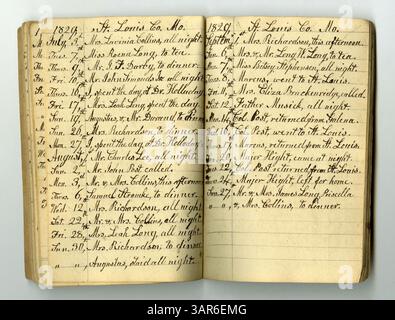 1829. St. Louis Co. Mo.
July, Mrs. Lavinia Collins, all night.
Miss Rosena Long, to tea.
Mr. J. F. Darby, to dinner.
Mr. John Simonds, all night.
I spent the day at Dr. Holladay
Fri. 17, Mrs. Leah Long, spent the day.
Sun. 19, Augustus, & Mr. Durand, to dinner
Sun. 26, Mrs. Richardson, to dinner
Mon. 27, I spent the day, Dr. Holladay
August, 1, Mr. Charles Lee, all night.
Mr. John Post, called.
Mon. 3, Mr. & Mrs. Collins, this afternoon
Tues. 6, Samuel to dinner.
Wed. 12, Mrs. Richardson, all night
Sat. 22, Mr. & Mrs. Collins, all night.
Fri. 28, Mrs. Leah Long, all night.
Sun. 30, Mrs. Richardson, to dinner
" " Augustus, staid all night.
1829. St. Louis Co. Mo.
Sept. 1, Mrs. Richardson, this afternoon.
Sun. 6, Mrs. & Mr. Long, W. Long, to tea.
Mon. 7, Miss Betsey Stephenson, all night.
Tues. 8, Marcus, went to St. Louis.
Mrs. Eliza Breckenredge, called.
Sat. 12, Father Musick, all night.
Mon. 14, Col. Post, returned from Galena
Post, went to St. Louis.
Marcus, returned from St. Louis.
Major Hight, came at night.
Post returned from St. Louis.
24, Major Hight, left for home.
Sun. 27, Mr. & Mrs. James Long, Priscilla
" " & Mrs. Collins, to dinner.
alamy
Image ID: 3AR6EMG
www.alamy.com